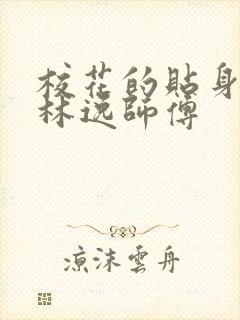 校花的貼身
林逸師傅
涼沫雲舟